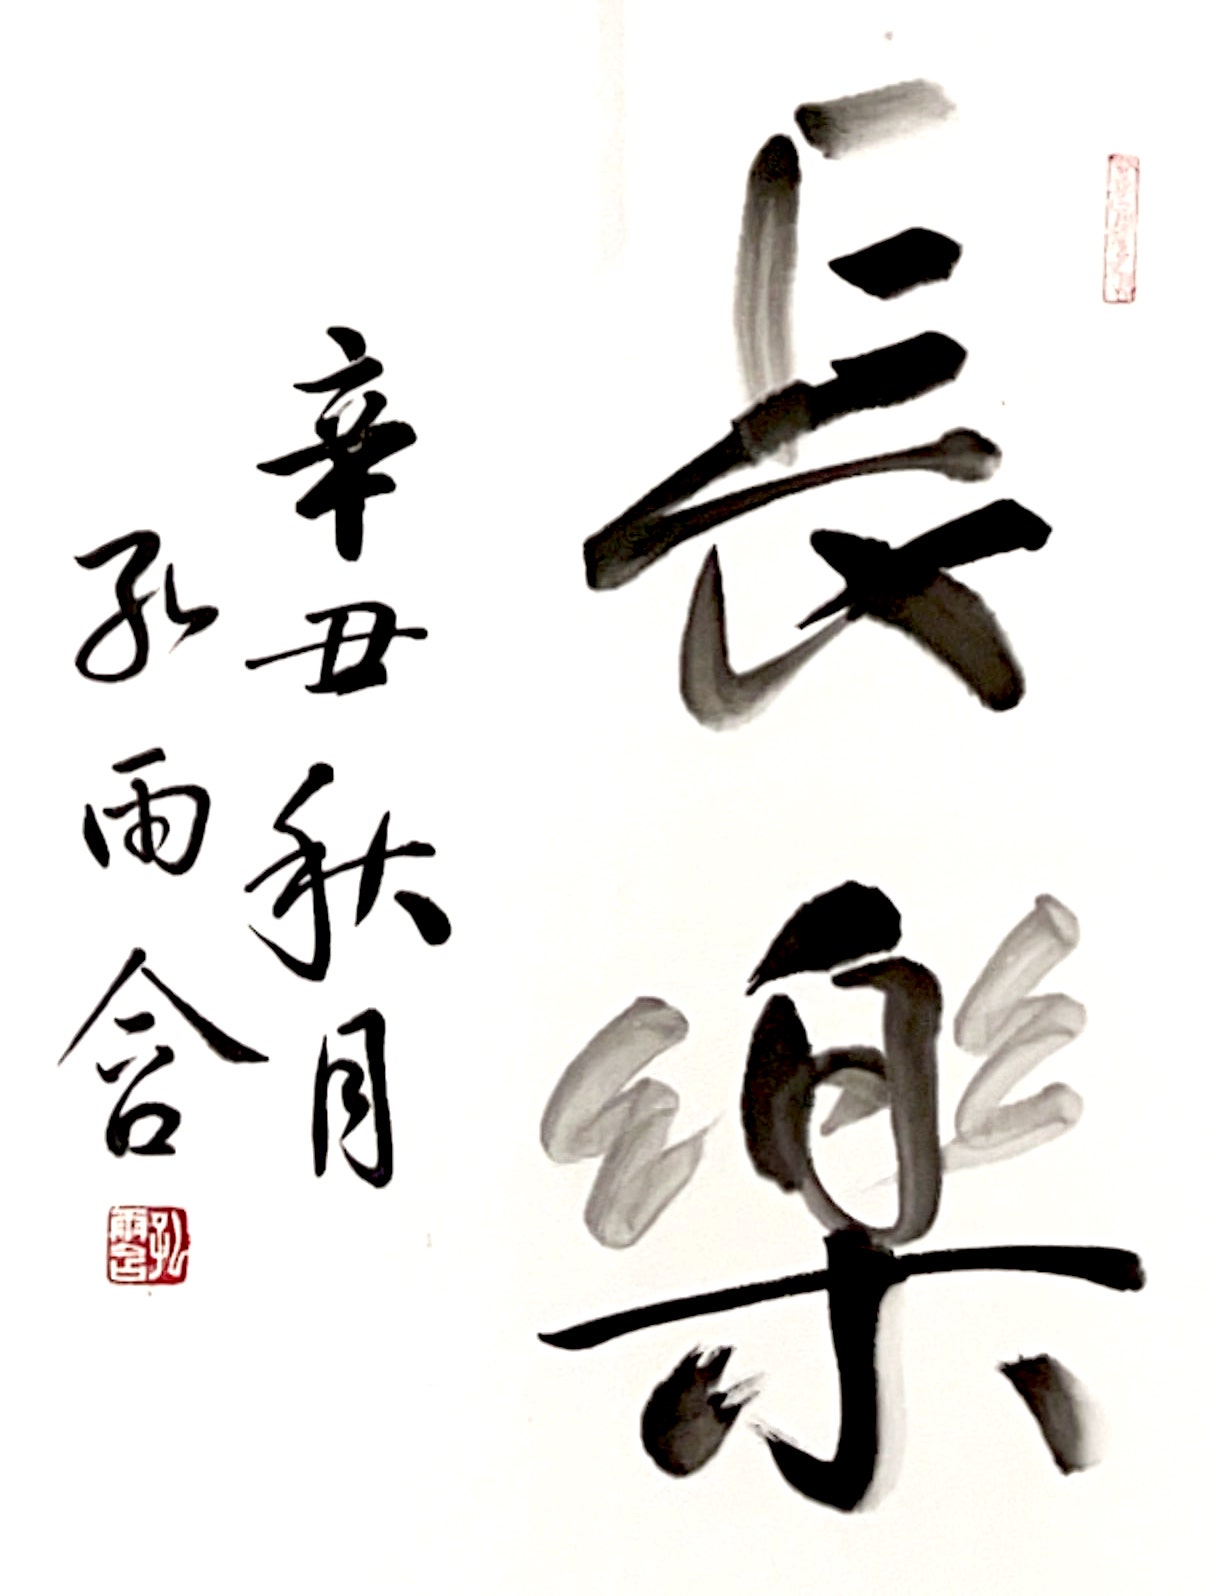 長樂
辛丑秋月
孔雨含
孔雨含